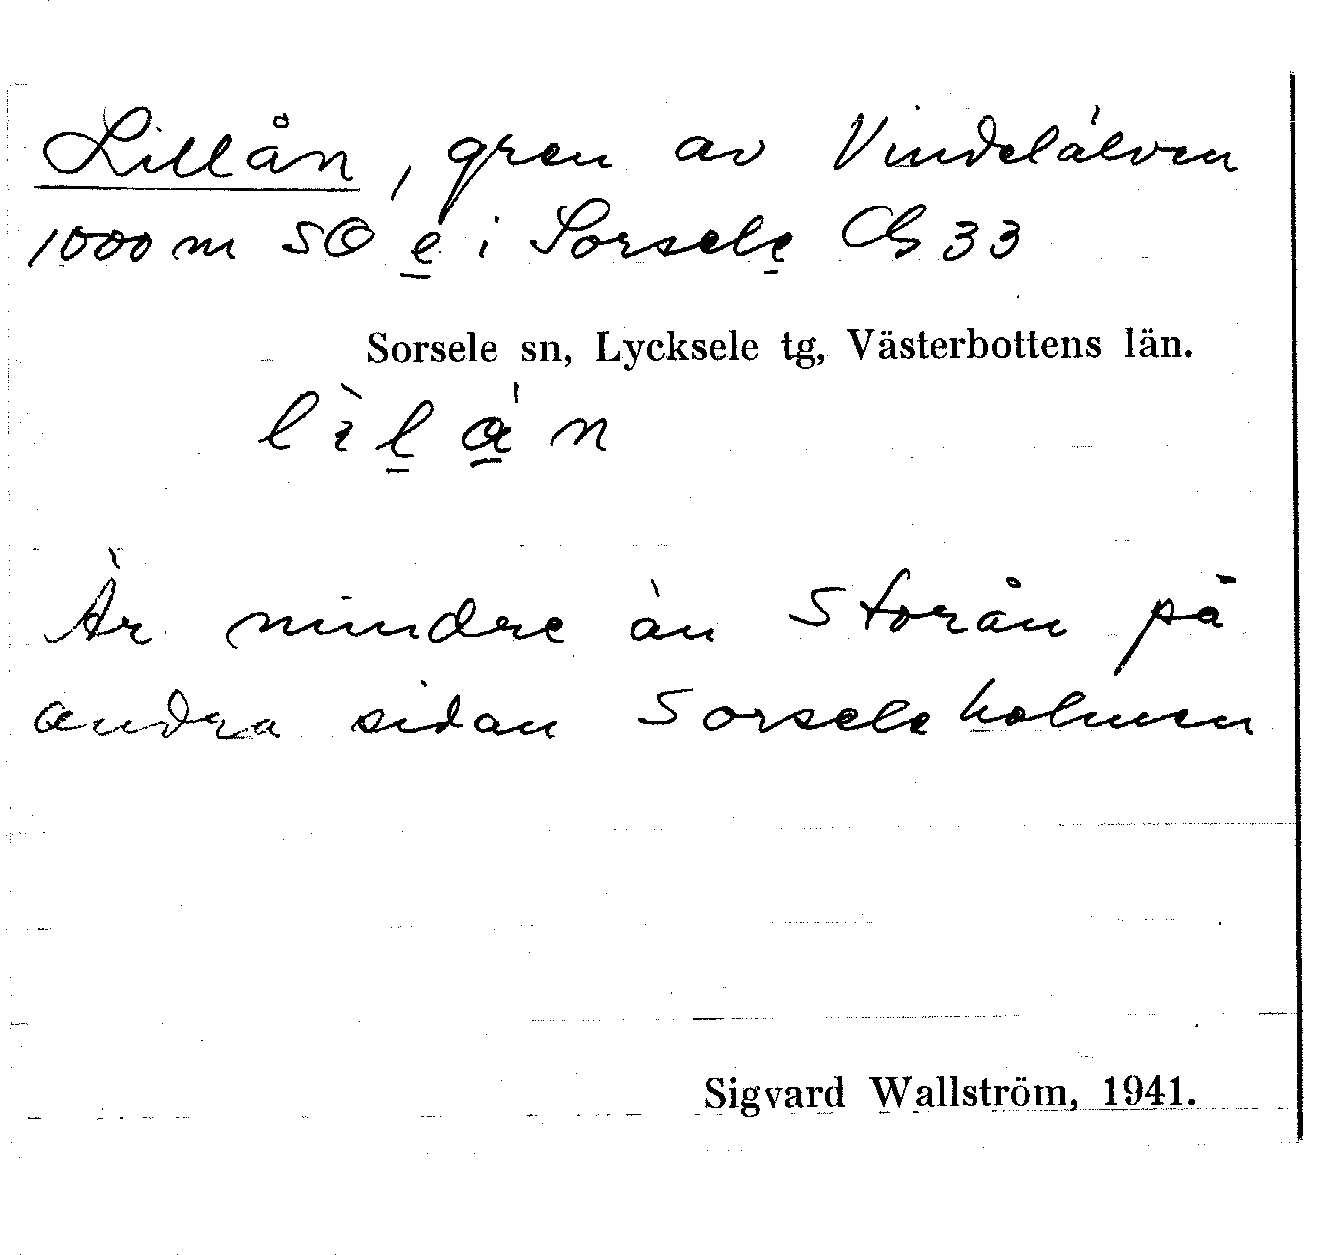 Lillån, gren av Vindelälven
1000 m SO e i Sorsele Cb 33
Sorsele sn, Lycksele tg, Västerbottens län.
lìlán
Är mindre än Storån på
andra sidan Sorseleholmen
Sigvard Wallström, 1941.